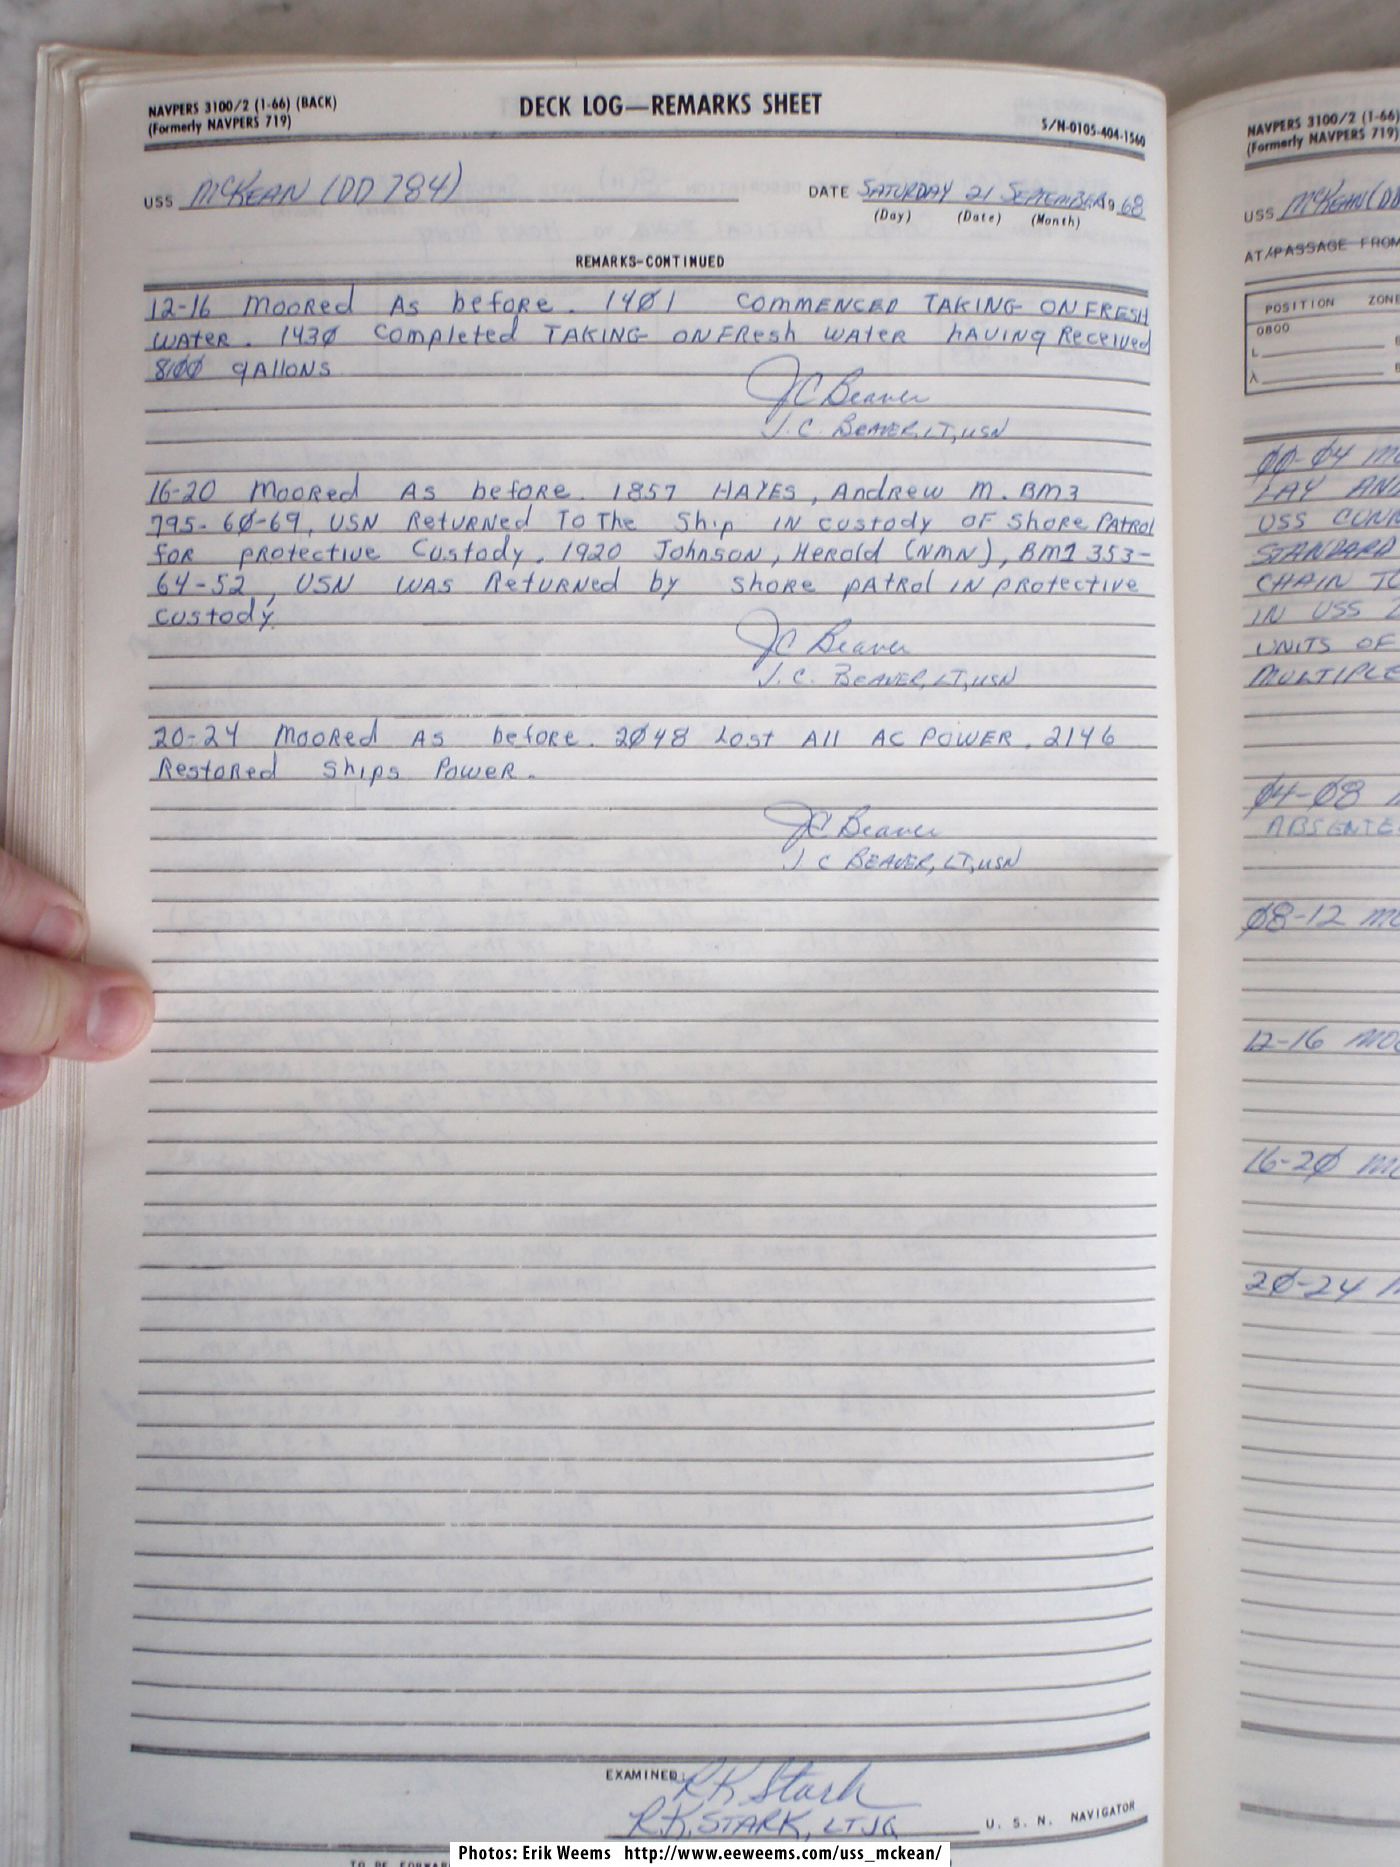 NAVPERS 3100/2 (1-66) (BACK)
(Formerly NAVPERS 719)
DECK LOG—REMARKS SHEET
S/N-0105-404-1560
USS McKEAN (DD 784)
DATE SATURDAY 21 SEPTEMBER 19 68
(Day) (Date) (Month)
REMARKS-CONTINUED
12-16 Moored As before. 14Ø1 COMMENCED TAKING ON FRESH
WATER. 143Ø Completed TAKING ON FResh WATER hAVINg Received
81ØØ gAllONS
JC Beaver
J. C. BEAVER, LT, USN
16-20 Moored As before. 1857 HAYES, Andrew M. BM3
795-6Ø-69, USN ReturNed To The Ship IN custody OF Shore PATROl
for protective Custody. 1920 Johnson, Herold (NMN), BM1 353-
64-52, USN WAS ReturNed by Shore pAtrol IN protective
custody.
JC Beaver
J. C. BEAVER, LT, USN
20-24 Moored As before. 2Ø48 Lost All AC POWER. 2146
Restored Ships Power.
JC Beaver
J. C BEAVER, LT, USN
EXAMINED:
RK Stark
R.K. STARK, LTJG
U. S. N. NAVIGATOR
NAVPERS 3100/2 (1-66)
(Formerly NAVPERS 719)
USS McKEAN (DD
AT/PASSAGE FROM
POSITION ZONE
0800
L
λ
ØØ-Ø4
LAY AND
USS
STANDARD
CHAIN TO
IN USS
UNITS OF
MULTIPLE
Ø4-Ø8
ABSENTE
Ø8-12 MO
12-16 MOO
16-2Ø MO
2Ø-24
Photos: Erik Weems http://www.eeweems.com/uss_mckean/